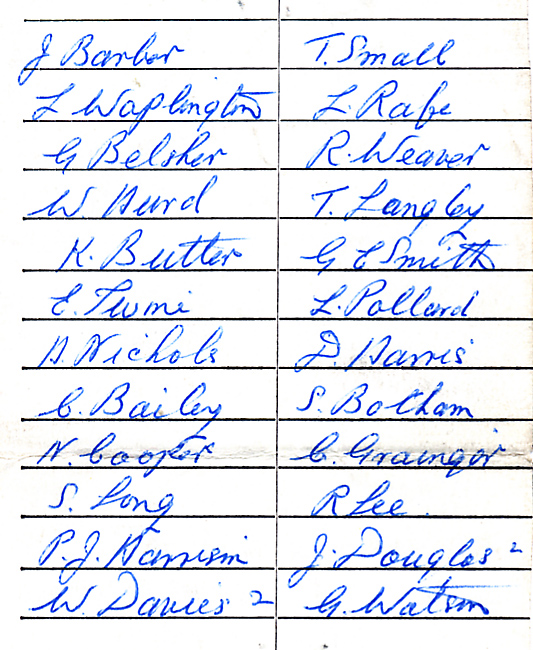 J Barber
L Waplington
G Belsher
W Hurd
K. Butter
E.
H. Nichols
C. Bailey
N. Cooper
S. Long
P. J. Harrison
W. Davies 2
T. Small
L. Rafe
R. Weaver
T. Langley
G E Smith
L. Pollard
D. Harris
S. Botham
C. Grainger
R Lee.
J. Douglas 2
G. Watson